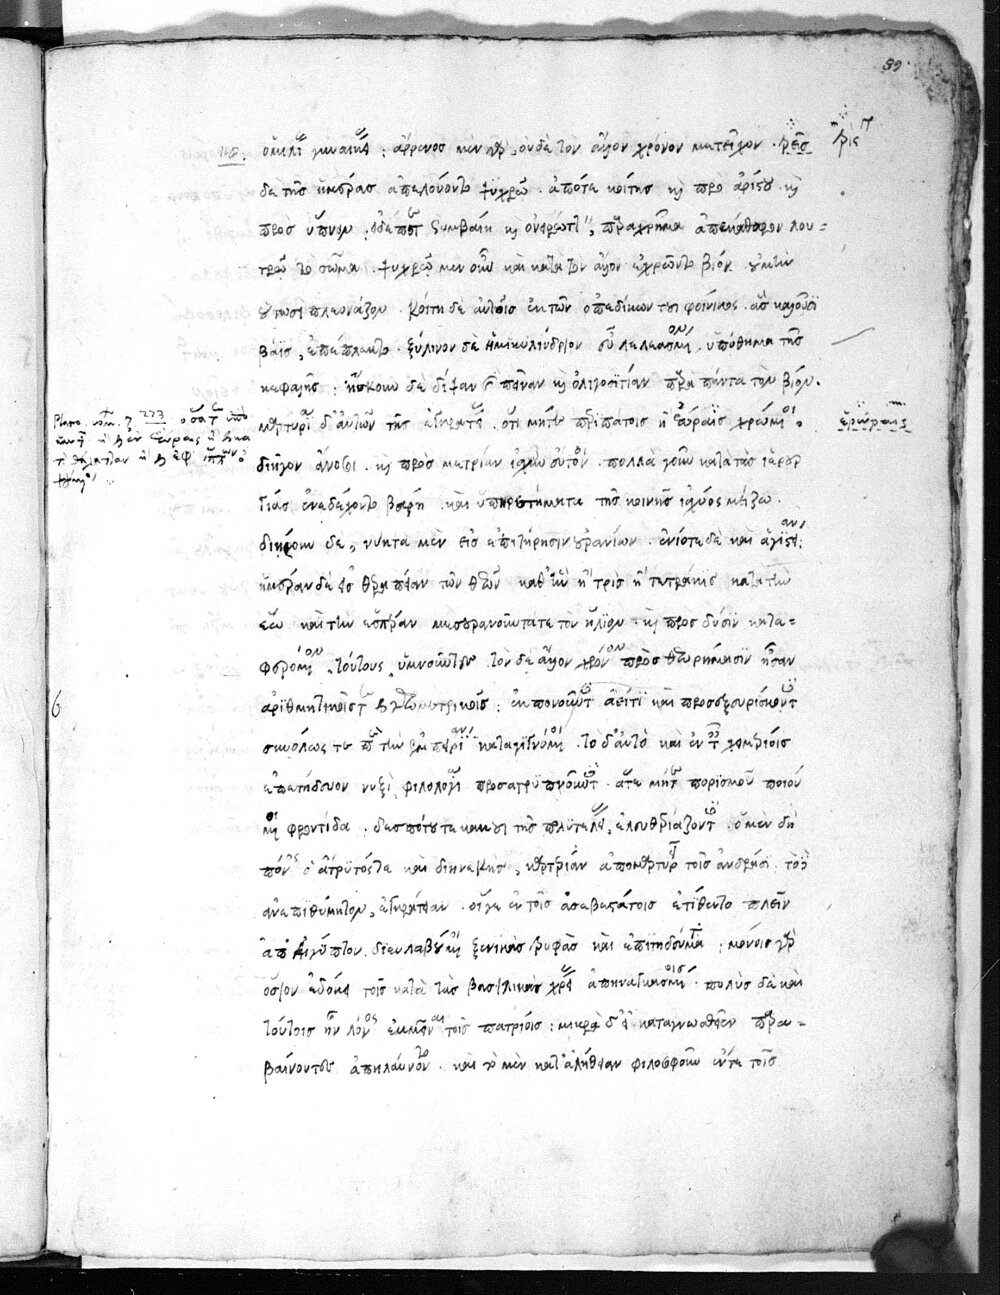 ὁμιλίας γυναικείας· ἄρρενος μὲν γὰρ οὐδὲ τὸν ἄλλον χρόνον μετεῖχον. τρεῖς
δὲ τῆς ἡμέρας ἀπελούοντο ψυχρῷ. ἀπό τε κοίτης καὶ πρὸ ἀρίστου καὶ
πρὸς ὕπνον. εἰ δέ ποτε συμβαίη καὶ ὀνειρώττειν, παραχρῆμα ἀπεκάθαιρον λου=
τρῷ τὸ σῶμα. ψυχρῷ μὲν οὖν καὶ κατὰ τὸν ἄλλον ἐχρῶντο βίον. οὐ μὴν
οὕτωσι πλεονάζον. κοίτη δὲ αὐτοῖς ἐκ τῶν σπαδίκων τοῦ φοίνικος. ἃς καλοῦσι
βάϊς, ἐπέπλεκτο. ξύλινον δὲ ἡμικυλίνδριον εὖ λελεασμένον. ὑπόθημα τῆς
κεφαλῆς· ἤσκουν δὲ δίψαν καὶ πεῖναν καὶ ὀλιγοσιτίαν παρὰ πάντα τὸν βίον.
μαρτύριον δ' αὐτῶν τῆς ἐγκρατείας. ὅτι μήτε περιπάτοις ἢ ἑώραις χρώμενοι.
διῆγον ἄνοσοι. καὶ πρὸς μετρίαν ἰσχὺν εὔτονοι. πολλὰ γοῦν κατὰ τὰς ἱερουρ
γίας ἐνεδέχοντο βάρη. καὶ ὑπηρετήματα τῆς κοινῆς ἰσχύος μείζω.
διῄρουν δὲ, νύκτα μὲν εἰς ἐπιτήρησιν οὐρανίων. ἐνίοτε δὲ καὶ ἁγιστείαν·
ἡμέραν δὲ εἰς θεραπείαν τῶν θεῶν καθ' ἣν ἢ τρὶς ἢ τετράκις κατὰ τὴν
ἕω καὶ τὴν ἑσπέραν μεσουρανοῦντά τε τὸν ἥλιον καὶ πρὸς δύσιν κατα=
φερόμενον. τούτους ὑμνοῦντες. τὸν δὲ ἄλλον χρόνον πρὸς θεωρήμασιν ἦσαν
ἀριθμητικοῖς τε καὶ γεωμετρικοῖς· ἐκπονοῦντες ἀεί τι καὶ προσεξευρίσκοντες
συνόλως τε περὶ τὴν ἐμπειρίαν καταγινόμενοι. τὸ δ' αὐτὸ καὶ ἐν ταῖς χειμερίοις
ἐπετήδευον νυξὶ, φιλολογίᾳ προσαγρυπνοῦντες. ἅτε μήτε πορισμοῦ ποιού
μενοι φροντίδα. δεσπότου τε κακοῦ τῆς πολυτελείας ἐλευθεριάζοντες. ὁ μὲν δὴ
πόνος ὁ ἄτρυτός τε καὶ διηνεκὴς, καρτερίαν ἀπομαρτυρεῖ τοῖς ἀνδράσι. τὸ δ'
ἀνεπιθύμητον, ἐγκράτειαν. οἵ γε ἐν τοῖς ἀσεβεστάτοις ἐτίθεντο πλεῖν
ἀπ' Αἰγύπτου. διευλαβούμενοι ξενικὰς τρυφὰς καὶ ἐπιτηδεύματα· μόνοις γὰρ
ὅσιον ἐδόκει τοῖς κατὰ τὰς βασιλικὰς χρείας ἀπηναγκασμένοις. πολὺς δὲ καὶ
τούτοις ἦν λόγος ἐμμεῖναι τοῖς πατρίοις· μικρὰ δ' εἰ καταγνωσθεῖεν παρα=
βαίνοντες ἀπηλαύνοντο. καὶ τὸ μὲν κατ' ἀλήθειαν φιλοσοφοῦν ἔν τε τοῖς